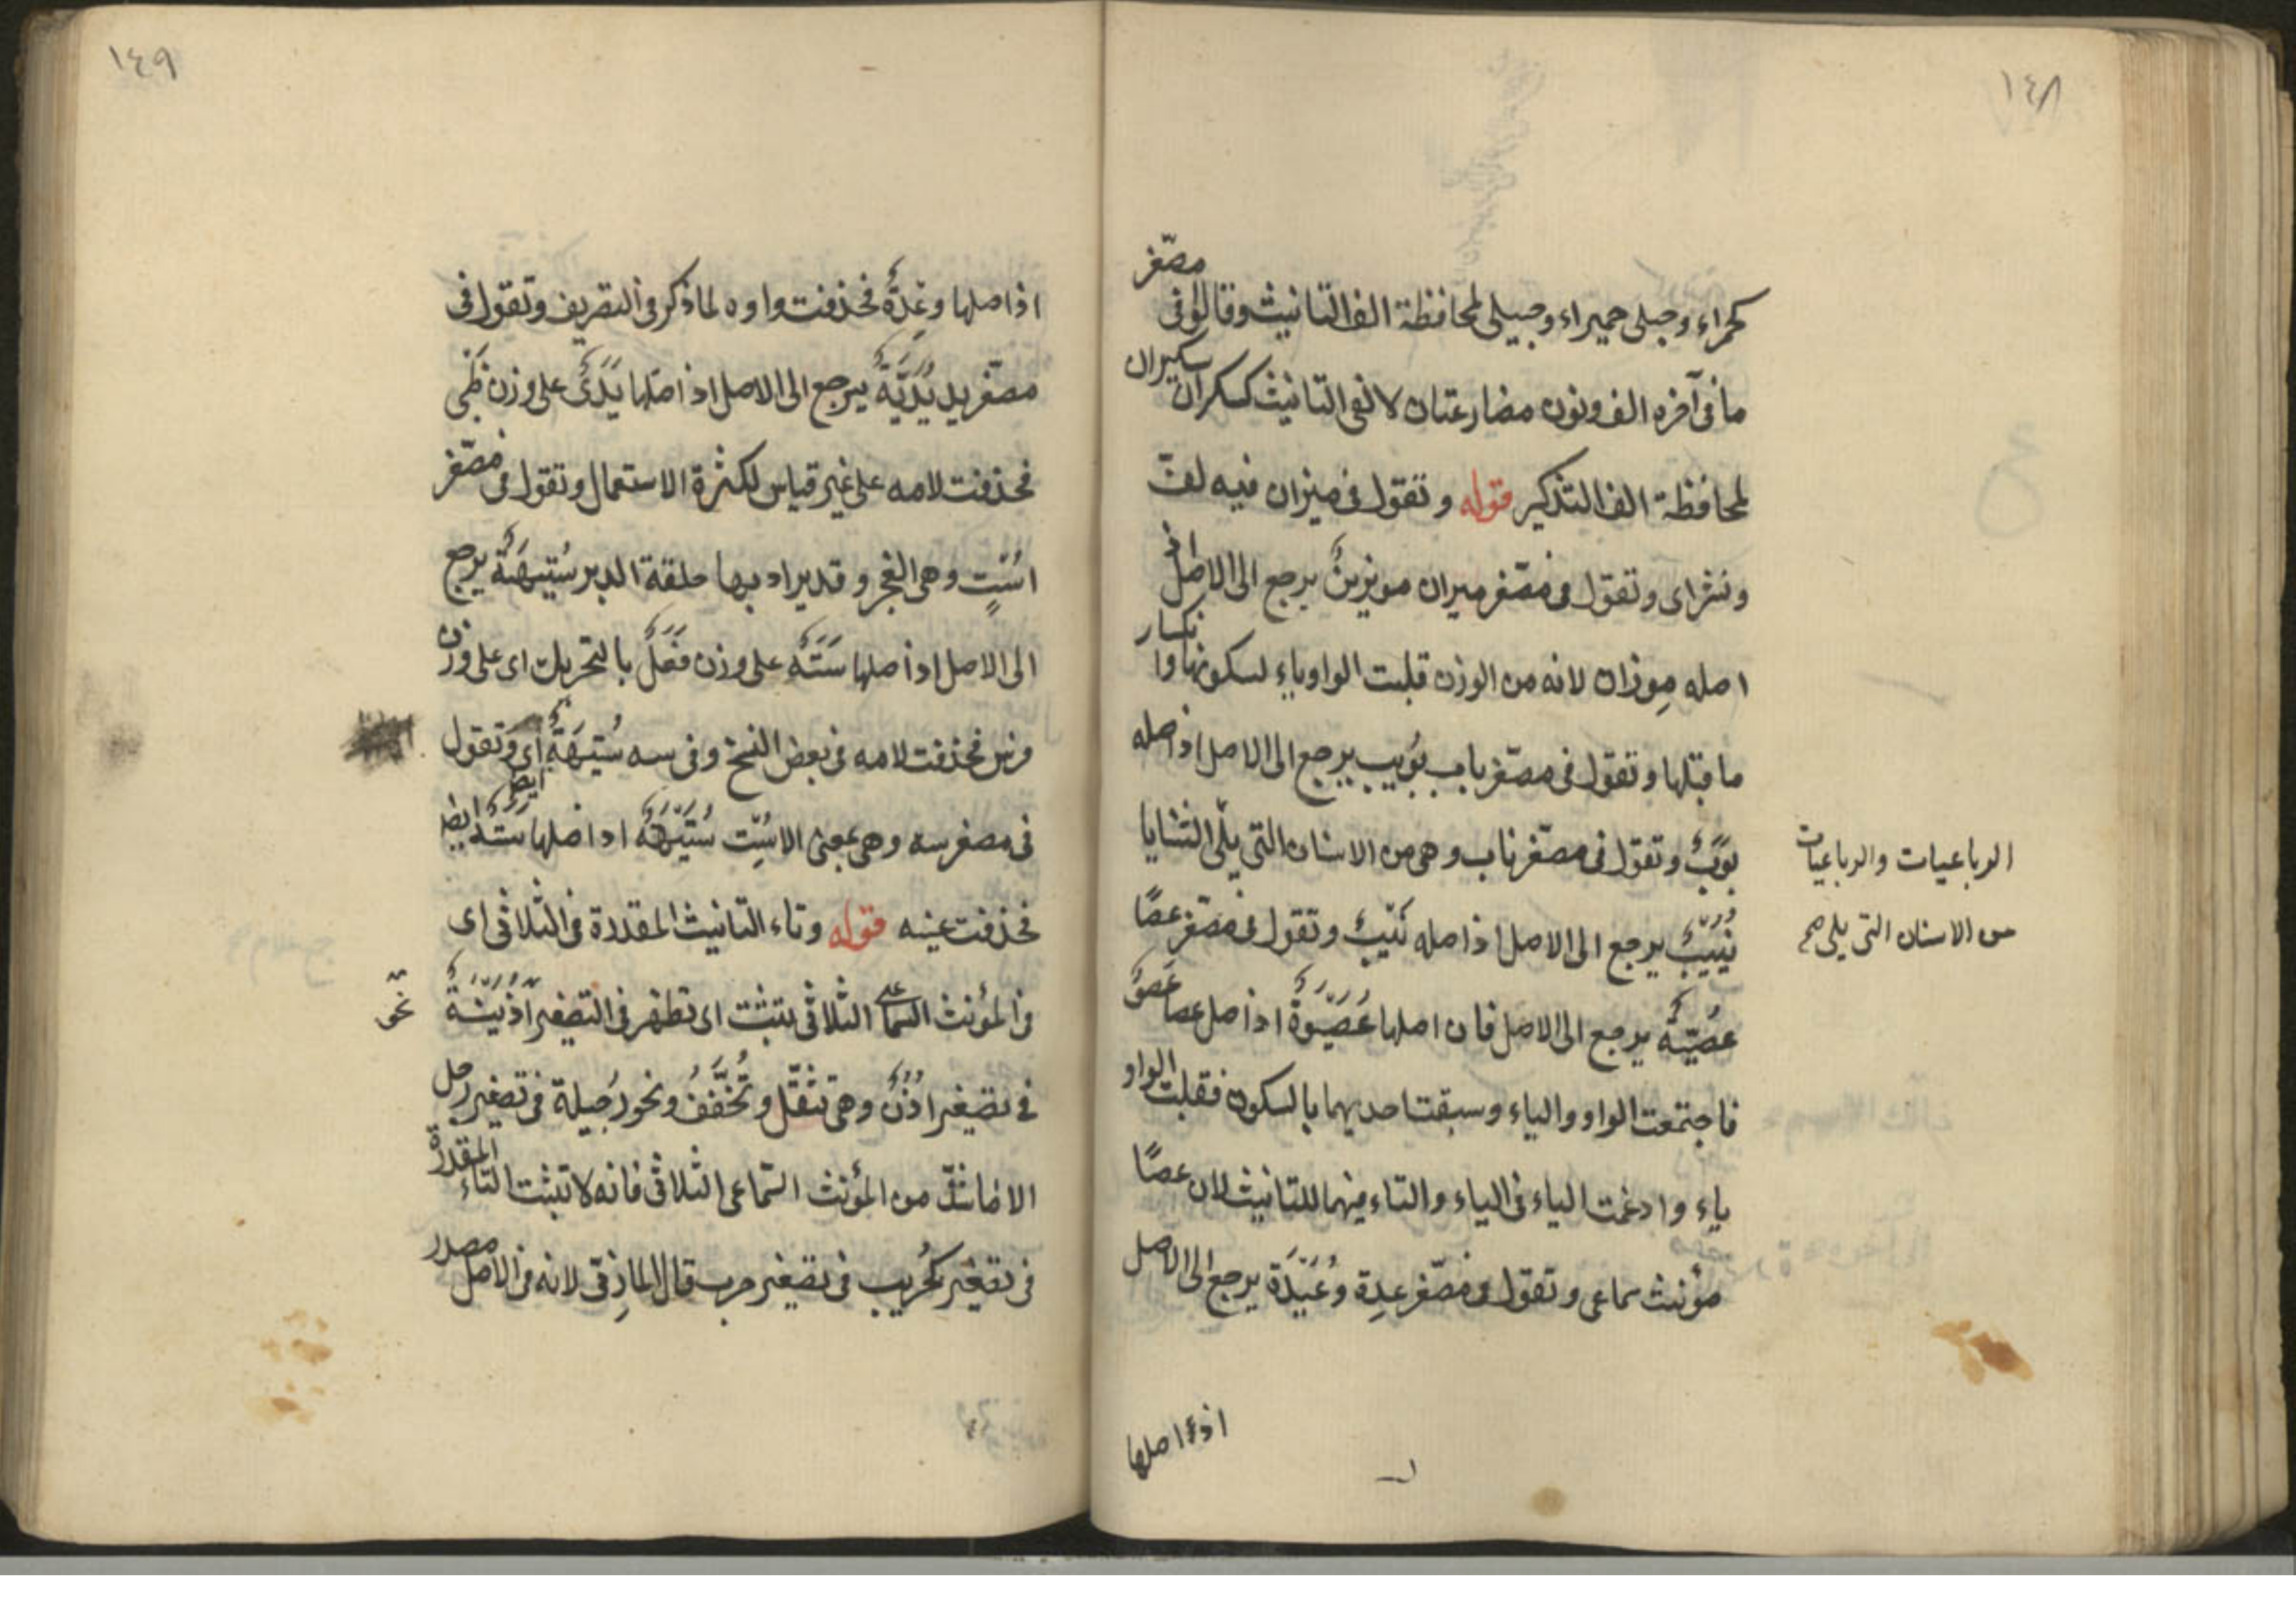 ١٤٨
كحمراء وحبلى حميراء وحبيلى لمحافظة الف التانيث وقالوا فى مصغر
ما فى آخره الف ونون مضارعتان لالفى التانيث كسكران سكيران
لمحافظة الف التذكير قوله وتقول فى ميزان فيه لف
ونشر اى وتقول فى مصغر ميزان مويزين يرجع الى الاصل اذ
اصله مِوزان لانه من الوزن قلبت الواو ياء لسكونها وانكسار
ما قبلها وتقول فى مصغر باب بُوَيب يرجع الى الاصل اذ اصله
بَوَبٌ وتقول فى مصغر ناب وهى من الاسنان التى يلى الثنايا
الرباعيات والرباعيات
من الاسنان التى يلى صح
نُيَيْبٌ يرجع الى الاصل اذ اصله نَيَبٌ وتقول فى مصغر عصًا
عُصَيّةٌ يرجع الى الاصل فان اصلها عُصَيْوَةٌ اذ اصل عصا عَصَوٌ
فاجتمعت الواو والياء وسبقت احديهما بالسكون فقلبت الواو
ياء وادغمت الياء فى الياء والتاء فيهما للتانيث لان عصًا
مؤنث سماعى وتقول فى مصغر عِدة وُعَيْدَة يرجع الى الاصل
اذ اصلها
١٤٩
اذ اصلها وِعْدَةٌ فحذفت واوه لما ذكر فى التصريف وتقول فى
مصغر يد يُدَيَّةٌ يرجع الى الاصل اذ اصلها يَدَىٌ على وزن ظَبْى
فحذفت لامه على غير قياس لكثرة الاستعمال وتقول فى مصغر
اسْتٍ وهى العجز وقد يراد بها حلقة الدبر سُتَيْهَةٌ يرجع
الى الاصل اذ اصلها سَتَهٌ على وزن فَعَلٌ بالتحريك اى على وزن
فرس فحذفت لامه فى بعض النسخ وفى سه سُتَيْهَةٌ اى وتقول ايضا
فى مصغر سه وهى بمعنى الاست سُتَيْهَةٌ اذ اصلها سَتَهٌ ايضا
فحذفت عينه قوله وتاء التانيث المقدرة فى الثلاثى اى
فى المؤنث السماعى الثلاثى يثبت اى تظهر فى التصغير اُذَيْنَةٌ
نحو
فى تصغير اُذُنٌ وهى تثقّل وتُخَفَّفُ ونحو رُجَيلة فى تصغير رجل
الا ما شذّ من المؤنث السماعى الثلاثى فانه لا تثبت التاء المقدرة
فى تصغير كحُرَيب فى تصغير حرب قال المازنى لانه فى الاصل مصدر